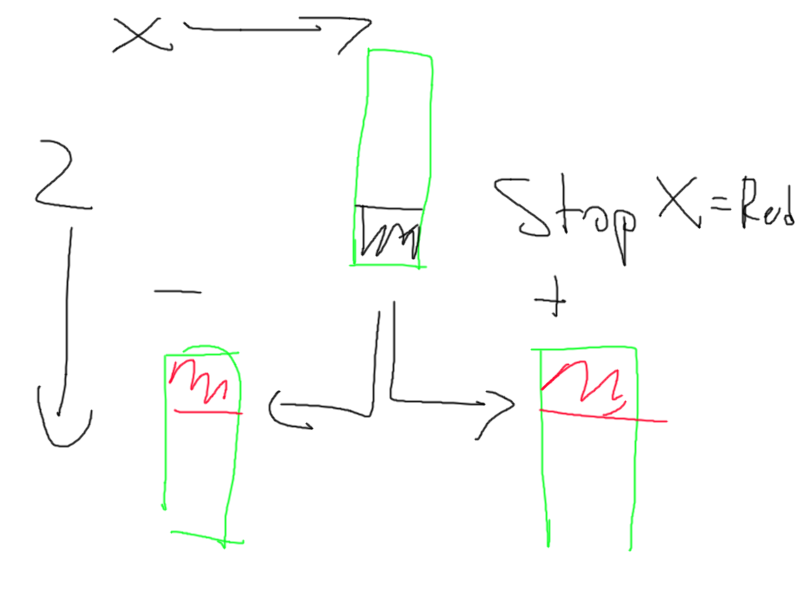 X
2
Stop X = Red
-
+